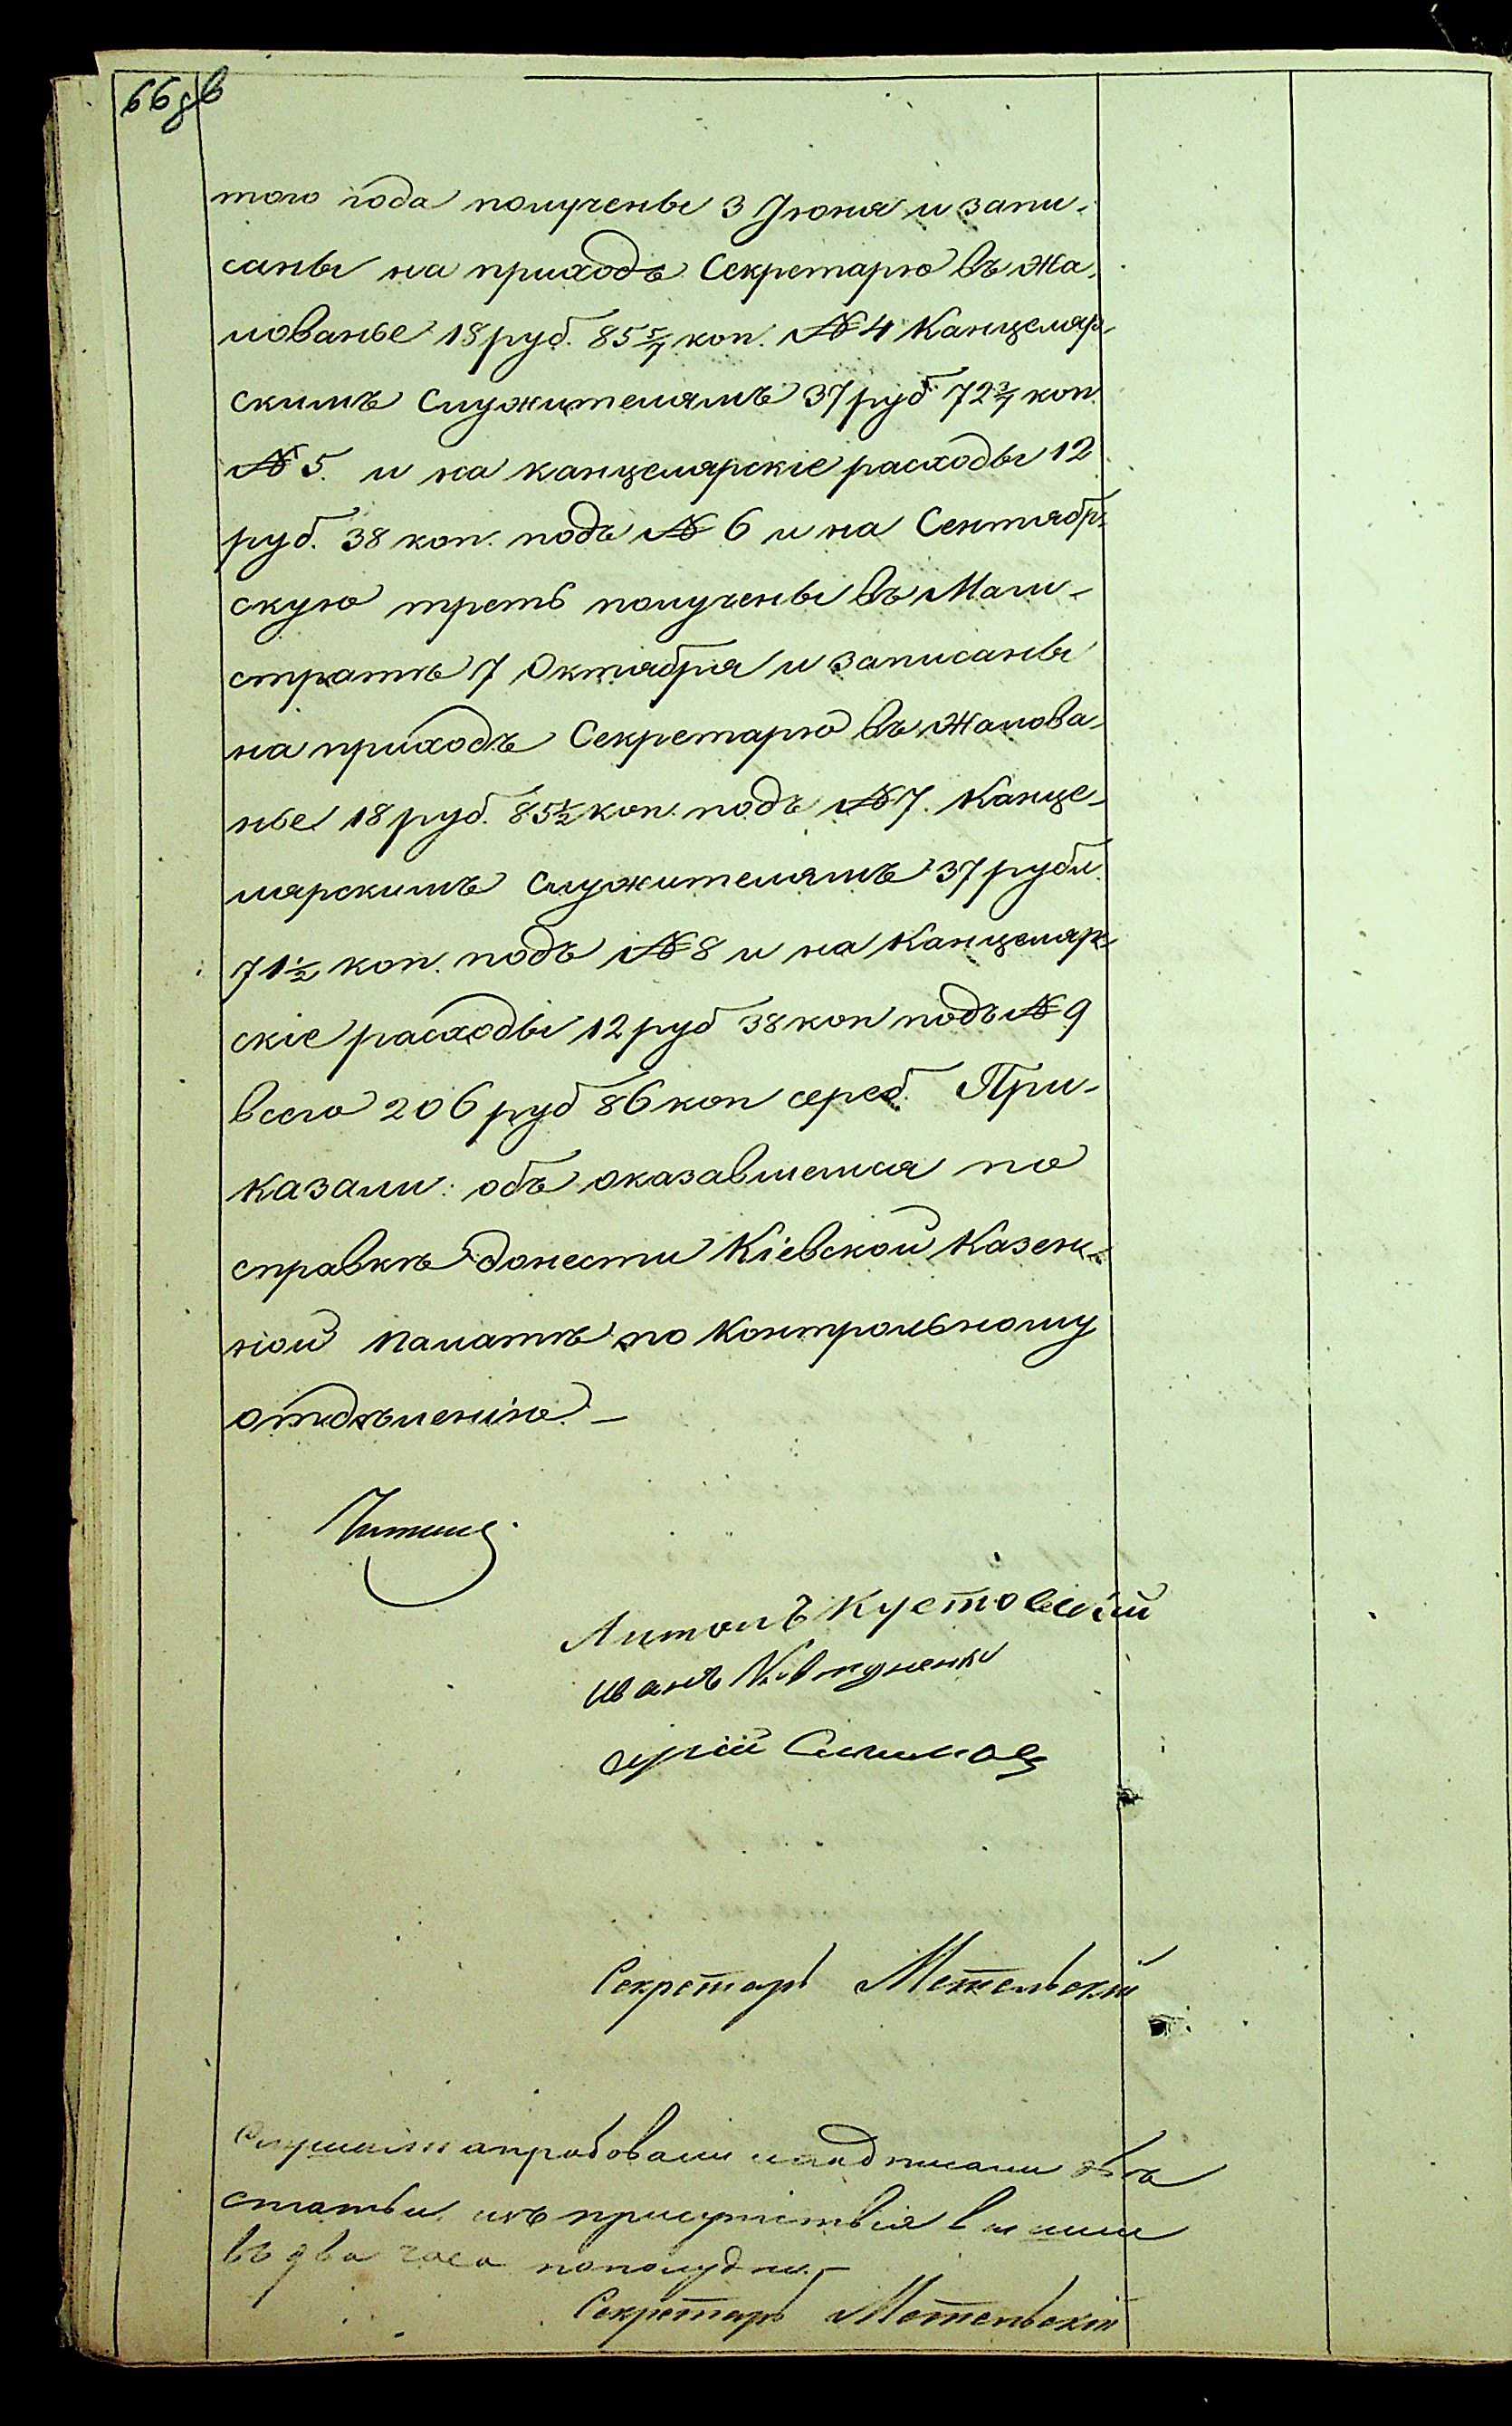 66
того года получены 3 Іюня и запи-
саны на приходъ Секретарю въ жа-
лованье 18 руб. 85 5/7 коп. № 4 Канцеляр-
скимъ служителямъ 37 руб 72 3/7 коп.
№ 5. и на канцелярскіе расходы 12
руб. 38 коп. подъ № 6 и на Сентябр-
скую треть получены въ Маги-
стратѣ 7 Октября и записаны
на приходъ Секретарю въ жалова-
нье 18 руб. 85 1/2 коп. подъ № 7. Канце-
лярскимъ служителямъ 37 рубл.
71 1/2 коп. подъ № 8 и на Канцеляр-
скіе расходы 12 руб 38 коп подъ № 9
всего 206 руб 86 коп сереб. При-
казали: объ оказавшемся по
справкѣ донести Кіевской Казен-
ной Палатѣ по Контрольному
отдѣленію. –
Антонъ Кустовскій
Иванъ
Секретарь Метельскій
Слушали апробовали и подписали двѣ
статьи изъ присутствія вышли
въ два часа пополудни. –
Секретарь Метельскій